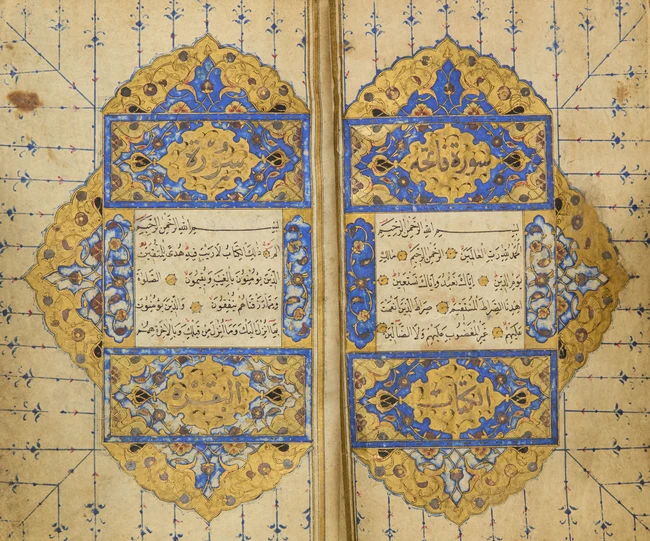 سورة فاتحة
بسم الله الرحمن الرحيم
الحمد لله رب العالمين الرحمن الرحيم مالك
يوم الدين اياك نعبد واياك نستعين
اهدنا الصراط المستقيم صراط الذين انعمت
عليهم غير المغضوب عليهم ولا الضالين
الكتاب
سورة
بسم الله الرحمن الرحيم
الم ذلك الكتاب لا ريب فيه هدى للمتقين
الذين يؤمنون بالغيب ويقيمون الصلوة
ومما رزقناهم ينفقون والذين يؤمنون
بما انزل اليك وما انزل من قبلك وبالاخرة هم
البقرة